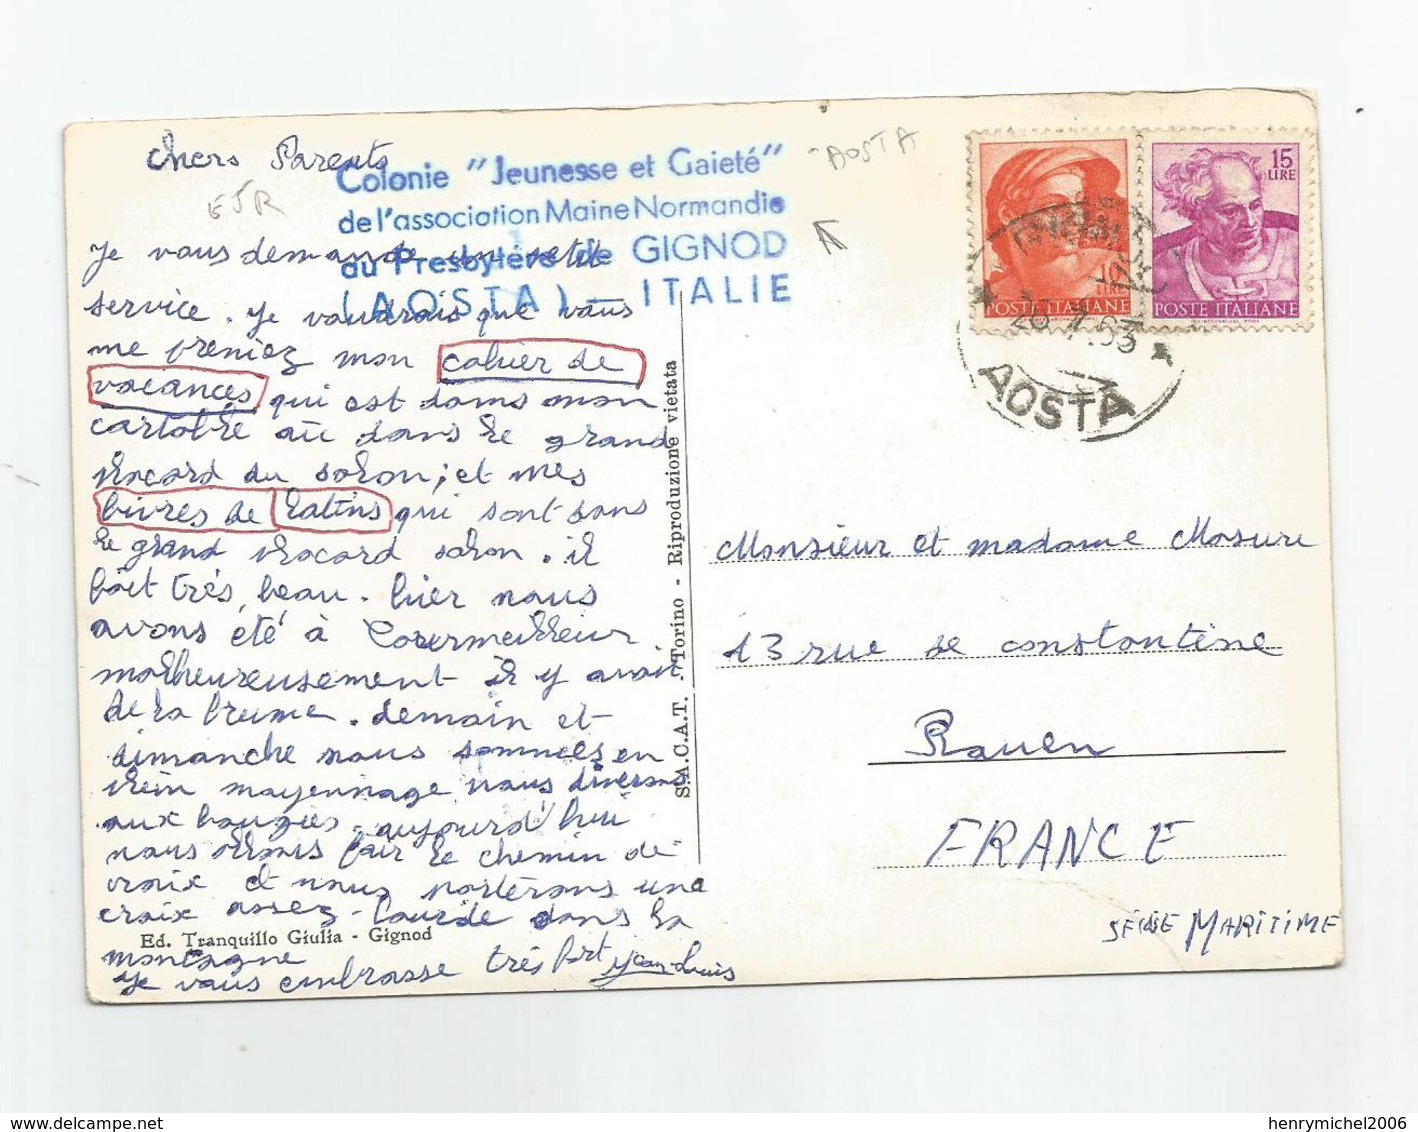 chers Parents
EJR
Colonie "Jeunesse et Gaieté"
de l'association Maine Normandie
au Presbytère de GIGNOD
(AOSTA) - ITALIE
AOSTA
je vous demande un petit
service. je voudrais que vous
me preniez mon cahier de
vacances qui est dans mon
cartable ou dans le grand
placard du salon; et mes
livres de latins qui sont dans
le grand placard salon. il
fait très beau. hier nous
avons été à
malheureusement il y avait
de la brume. demain et
dimanche nous sommes en
plein mayennage nous
aux bougies. aujourd'hui
nous allons fair le chemin de
croix et nous porterons une
croix assez lourde dans la
montagne
je vous embrasse très fort Jean-Louis
Ed. Tranquillo Giulia - Gignod
S.A.C.A.T. - Torino - Riproduzione vietata
10
POSTE ITALIANE
15
LIRE
POSTE ITALIANE
20.7.63
AOSTA
Monsieur et madame Masure
13 rue de constantine
Rouen
FRANCE
SEINE MARITIME
www.delcampe.net
henrymichel2006